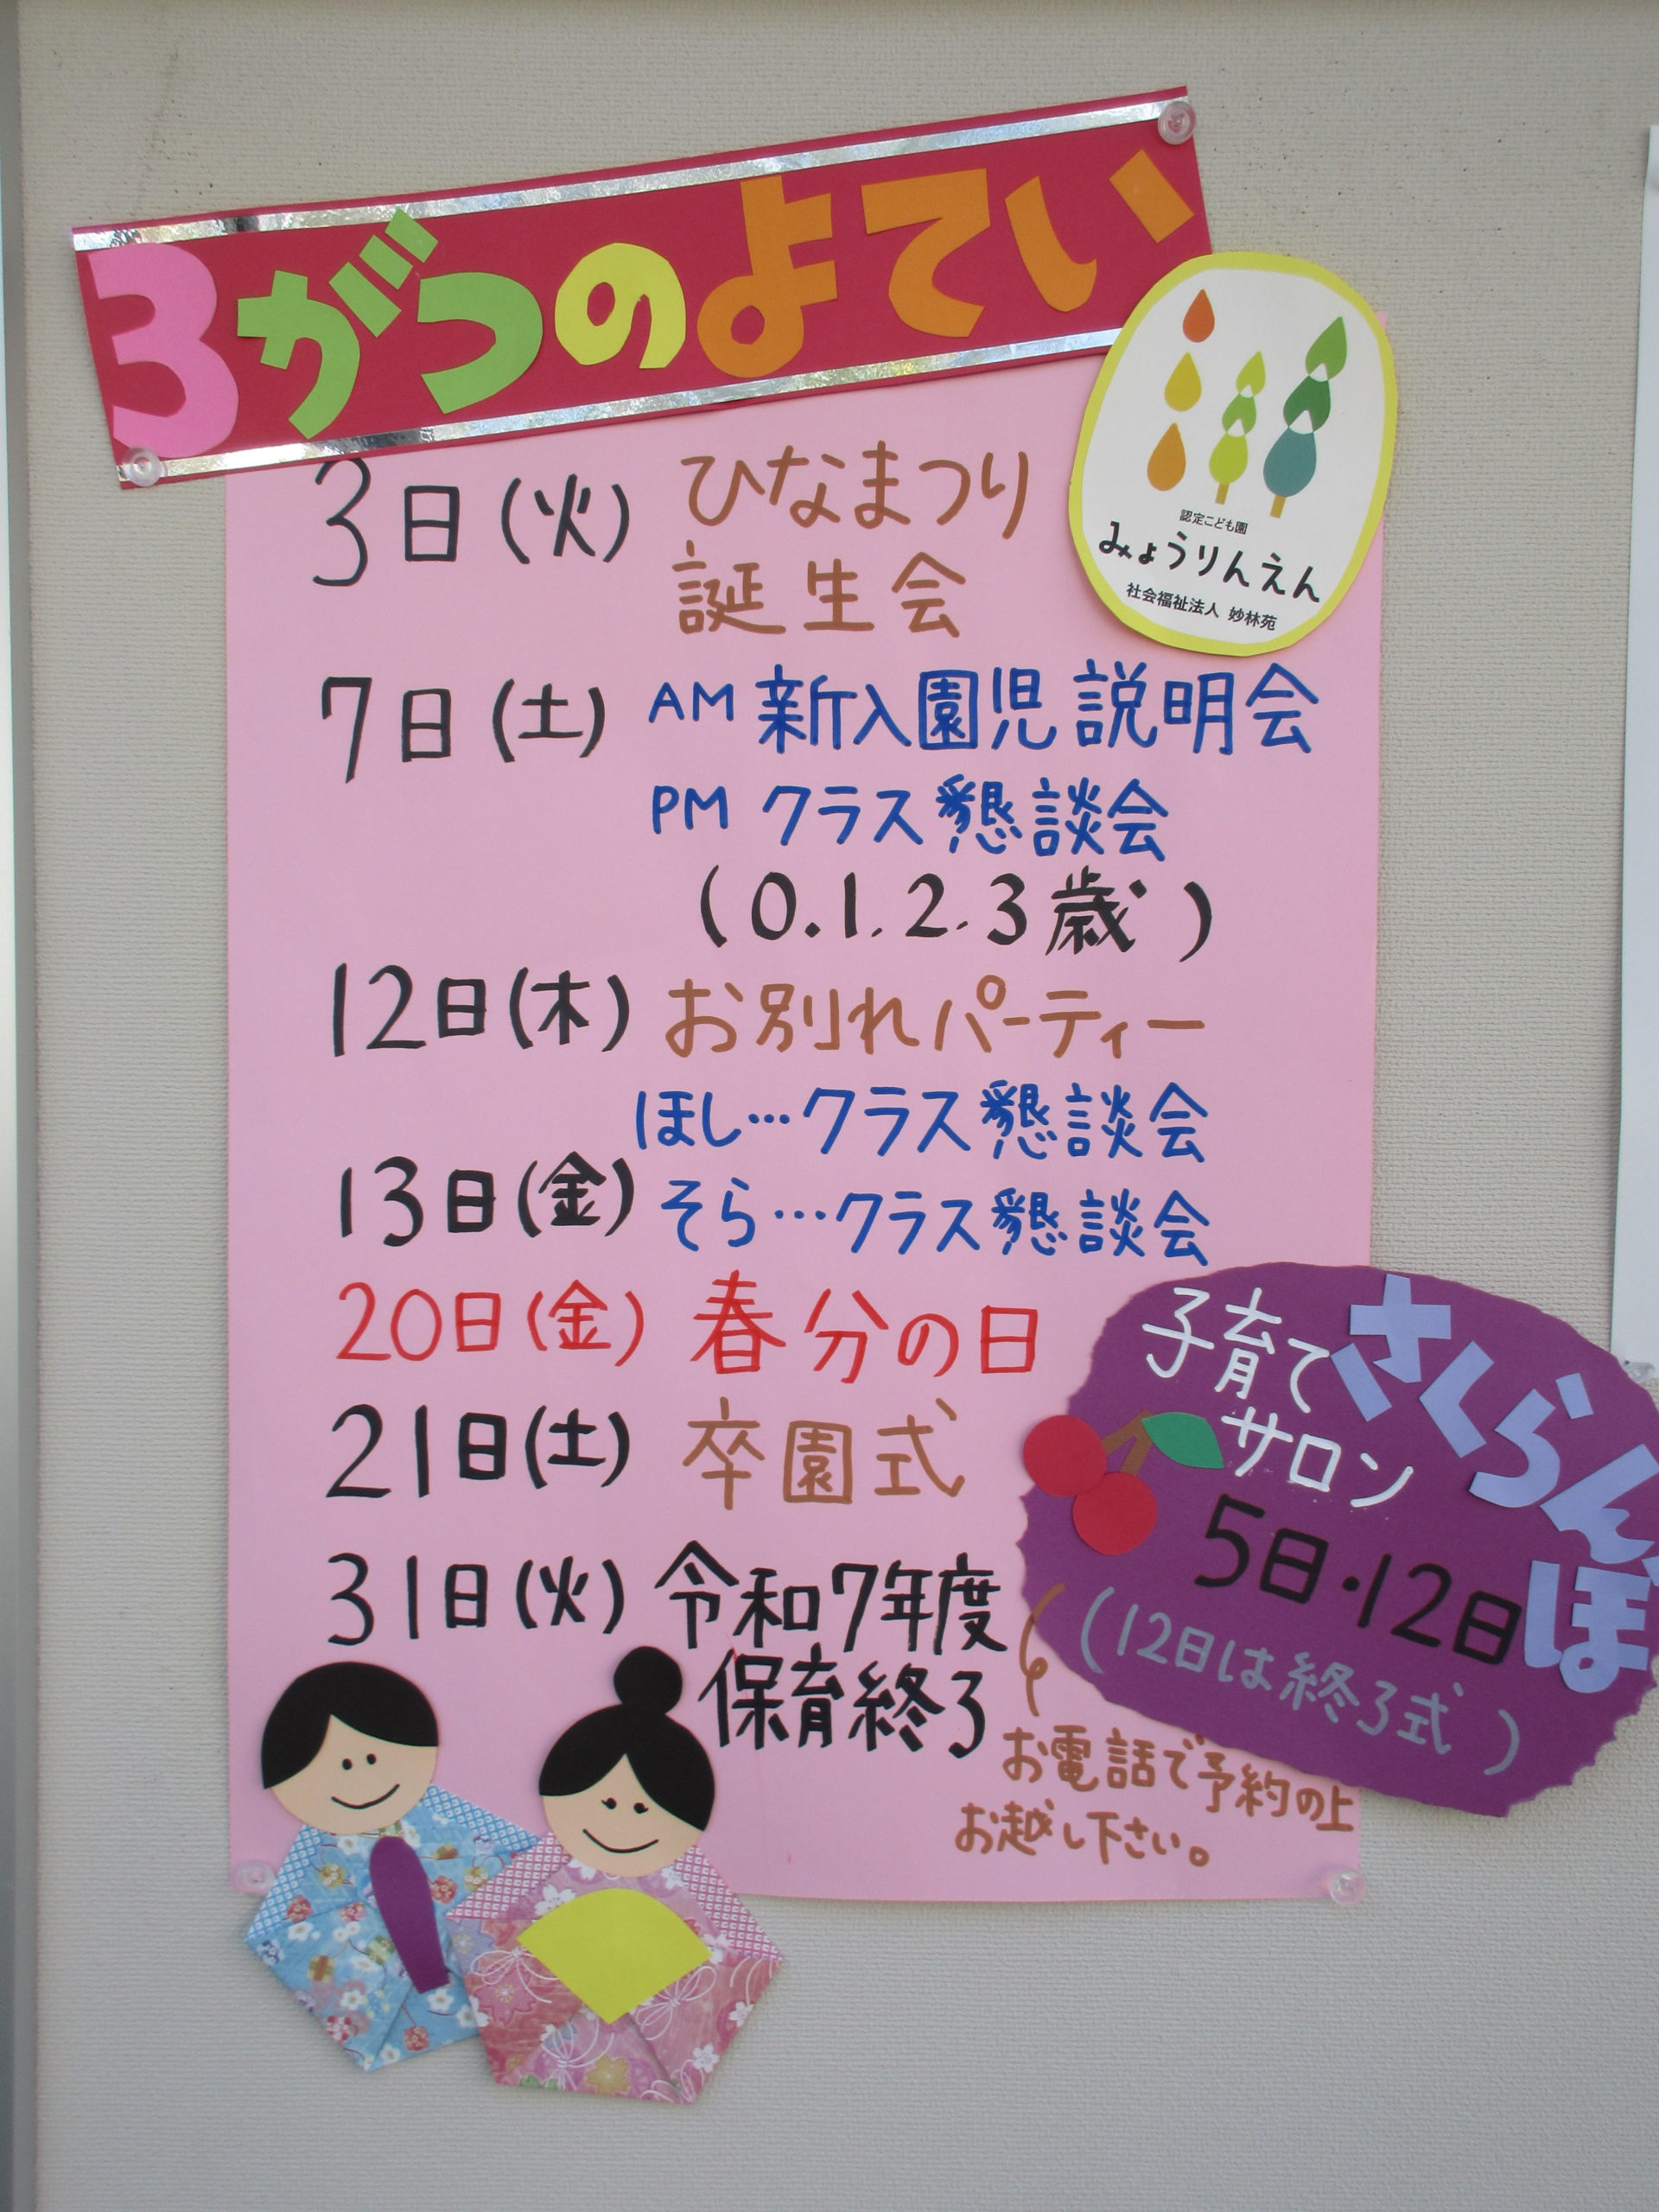 3がつのよてい
認定こども園
みょうりんえん
社会福祉法人 妙林苑
3日(火) ひなまつり
誕生会
7日(土) AM 新入園児説明会
PM クラス懇談会
(0.1.2.3歳)
12日(木) お別れパーティー
ほし…クラス懇談会
13日(金) そら…クラス懇談会
20日(金) 春分の日
21日(土) 卒園式
31日(火) 令和7年度
保育終了
子育て
サロン
さくらんぼ
5日・12日
(12日は終了式)
お電話で予約の上
お越し下さい。